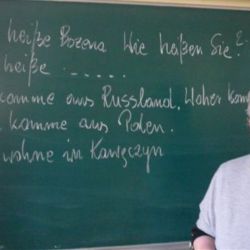 heiße Bozena Wie heißen Sie?
heiße ......
komme aus Russland. Woher kom
komme aus Polen.
wohne in Kańczyn